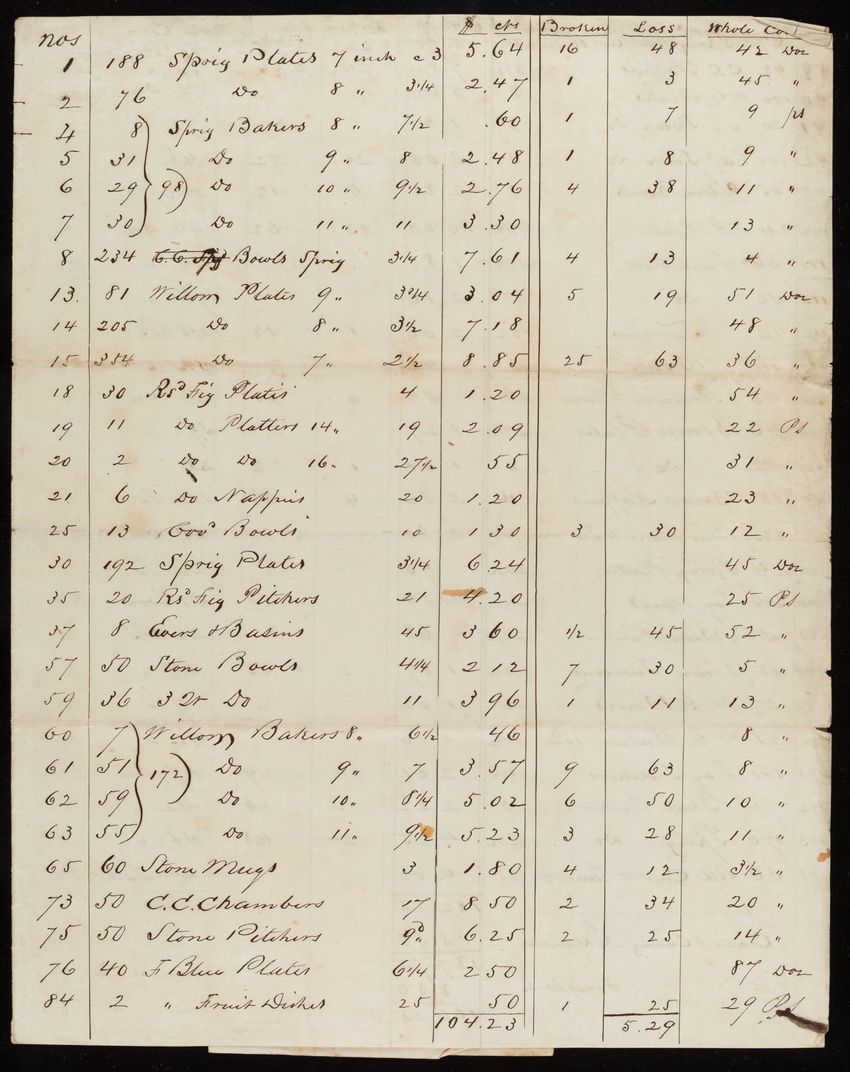 nos $ cts Broken Loss Whole Cost
1 188 Sprig Plates 7 inch c 3 5.64 16 48 42 Doz
2 76 Do 8 " 3 1/4 2.47 1 3 45 "
4 8 Sprig Bakers 8 " 7 1/2 .60 1 7 9 ps
5 31 Do 9 " 8 2.48 1 8 9 "
6 29 98 Do 10 " 9 1/2 2.76 4 38 11 "
7 30 Do 11 " 11 3.30 13 "
8 234 C.C. Sprig Bowls Sprig 3 1/4 7.61 4 13 4 "
13. 81 Willow Plates 9 " 3 3/4 3.04 5 19 51 Doz
14 205 Do 8 " 3 1/2 7.18 48 "
15 354 Do 7 " 2 1/2 8.85 25 63 36 "
18 30 Rsd Fig Plates 4 1.20 54 "
19 11 Do Platters 14 " 19 2.09 22 Ps
20 2 Do Do 16 " 27 1/2 55 31 "
21 6 Do Nappies 20 1.20 23 "
25 13 Covd Bowls 10 1 30 3 30 12 "
30 192 Sprig Plates 3 1/4 6.24 45 Doz
35 20 Rsd Fig Pitchers 21 4.20 25 Ps
37 8 Evers & Basins 45 3 60 1/2 45 52 "
57 50 Stone Bowls 4 1/4 2 12 7 30 5 "
59 36 3 Qr Do 11 3 96 1 11 13 "
60 7 Willow Bakers 8 " 6 1/2 46 8 "
61 51 172 Do 9 " 7 3.57 9 63 8 "
62 59 Do 10 " 8 1/4 5.02 6 50 10 "
63 55 Do 11 " 9 1/2 5.23 3 28 11 "
65 60 Stone Mugs 3 1.80 4 12 3 1/2 "
73 50 C.C. Chambers 17 8 50 2 34 20 "
75 50 Stone Pitchers 9d 6.25 2 25 14 "
76 40 F Blue Plates 6 1/4 2 50 87 Doz
84 2 " Fruit Dishes 25 50 1 25 29 Ps
104.23 5.29